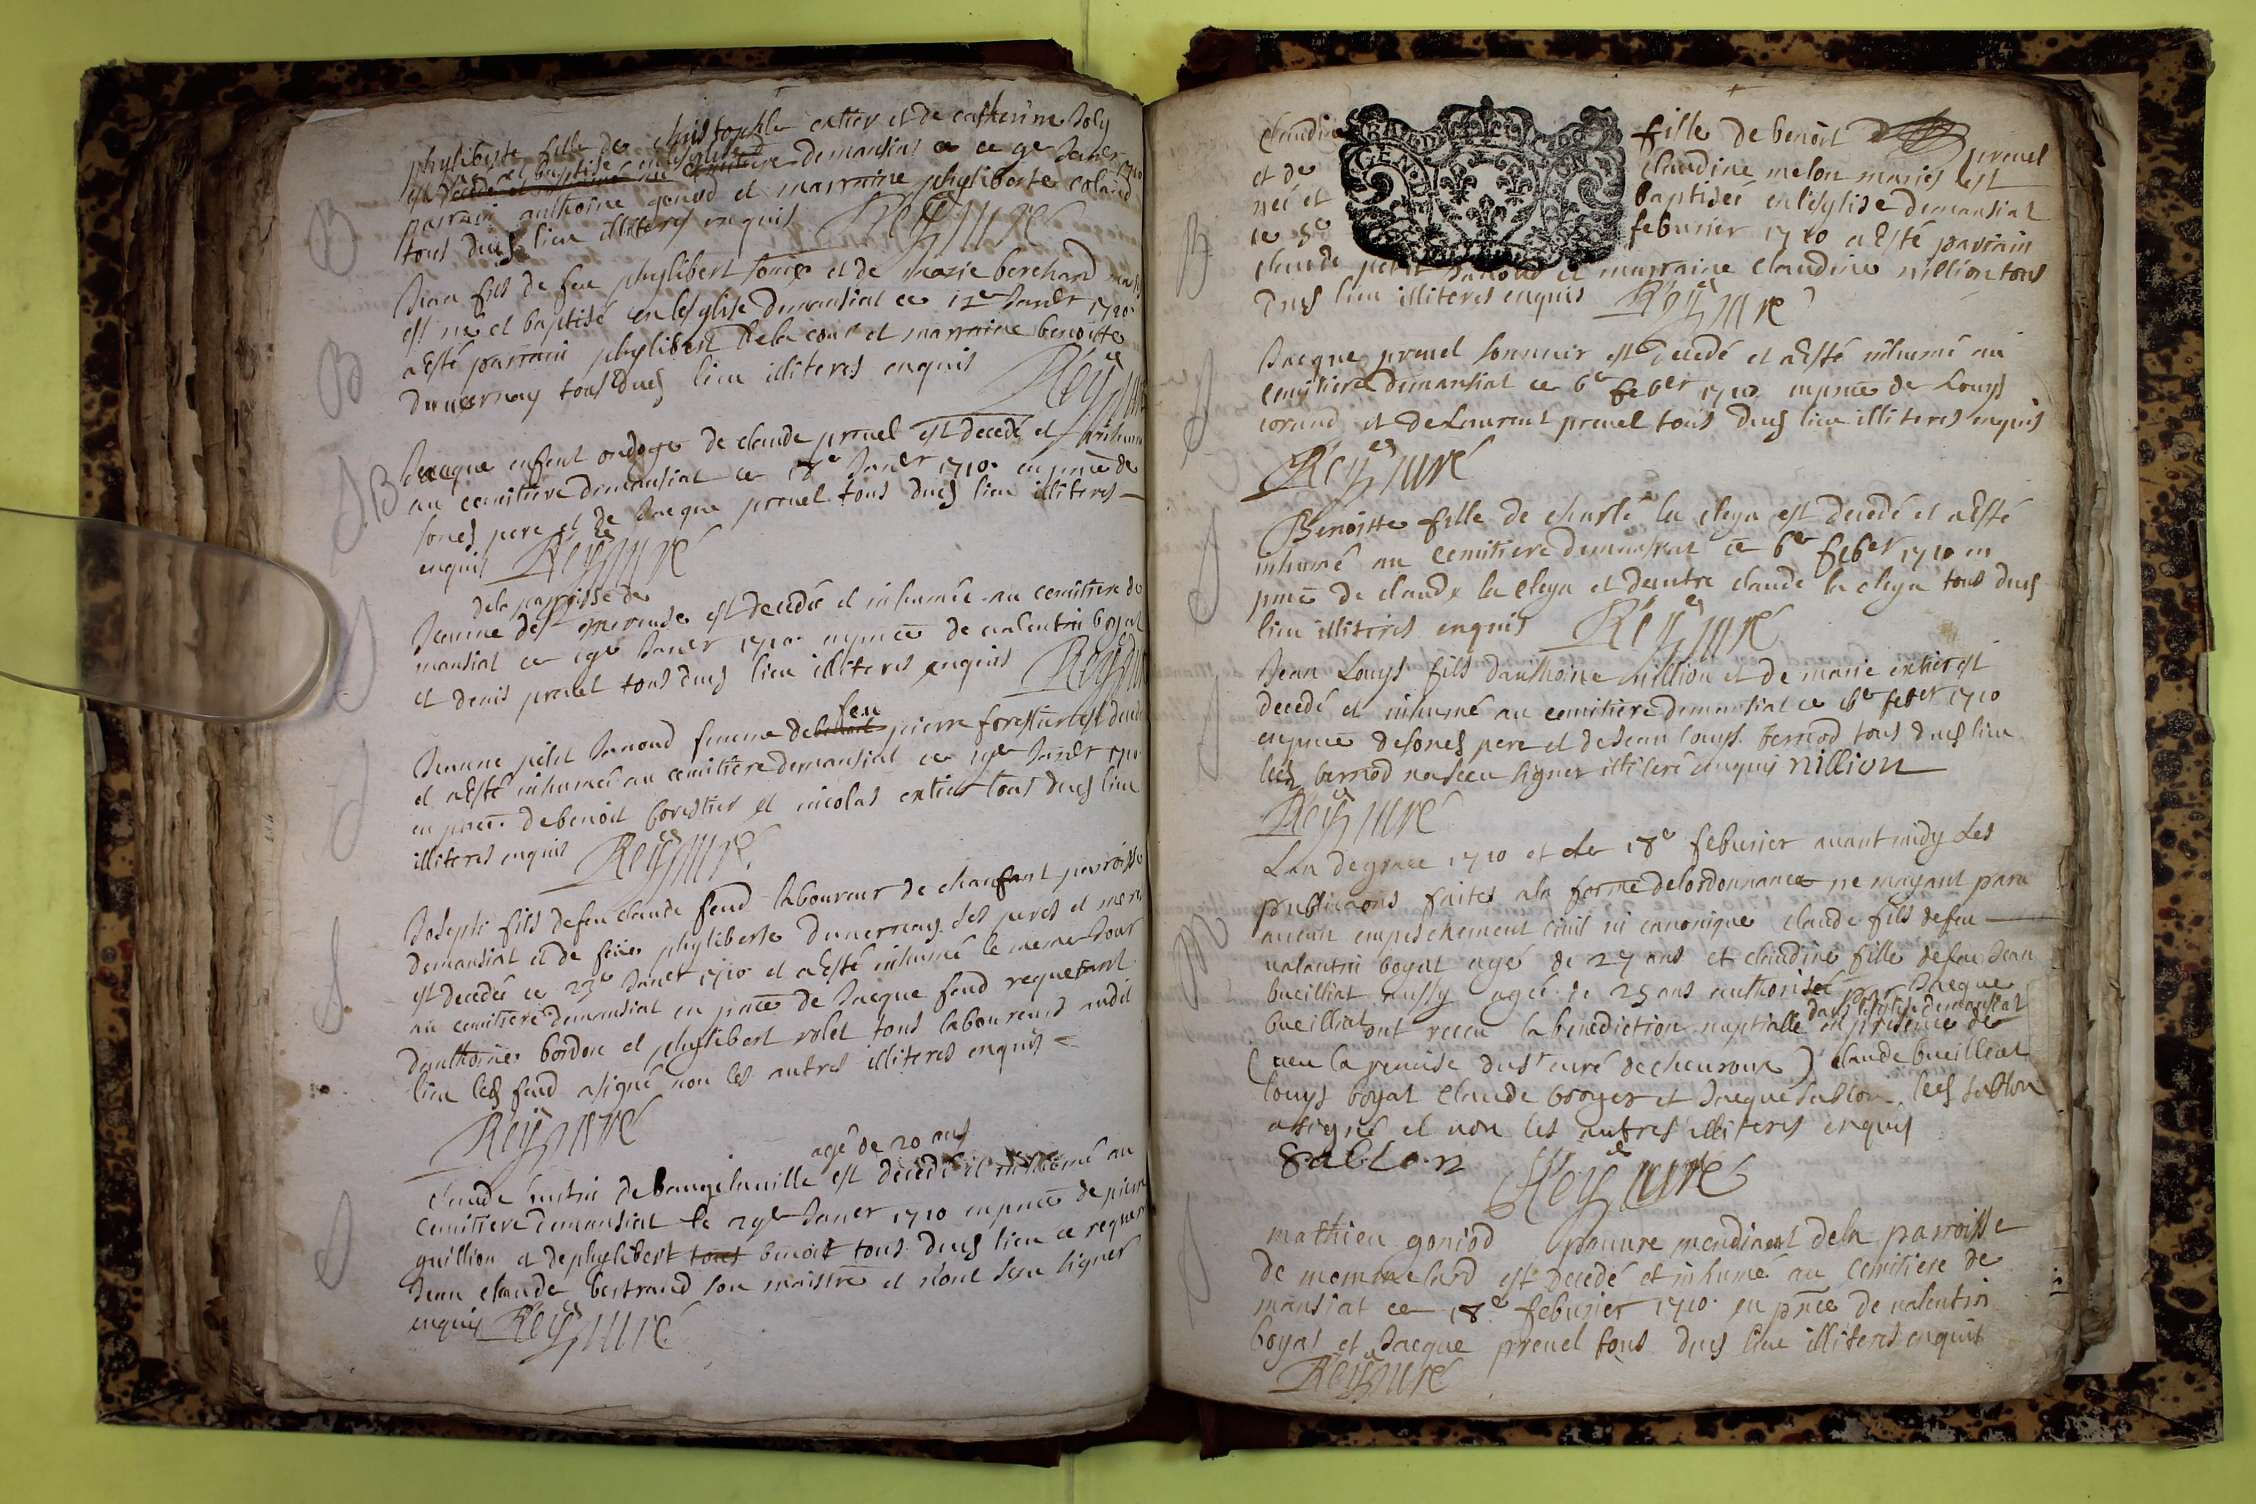 phyliberte fille de christophle extier et de catherine Joly
est née et baptisé en leglise demansiat ce 9e Janer 1710
parrain anthoine gonod et marraine phyliberte coland
tous dud lieu illiteres enquis Rey curé
Jean fils de feu phylibert et de marie berthard
est né et baptisé en leglise demansiat ce 12e Janer 1710
a esté parrain phylibert delacour et marraine benoitte
duvernay tous dud lieu illiteres enquis Rey
B
B
B
Jacque enfent ondoyé de claude prevel est decedé et inhumé
au cemitiere demansiat ce 18e Janer 1710 en pnce de
sond pere et de Jacque prevel tous dud lieu illiteres
enquis Rey curé
dela parroisse de
Jeanne de est decedée et inhumée au cemitiere de
mansiat ce 19e Janer 1710 en pnce de valentin boyat
et denis prevel tous dud lieu illiteres enquis Rey
feu
Jeanne petit Janod femme de pierre forestier est decedée
et a esté inhumée au cemitiere demansiat ce Janer 1710
en pnce de benoit forestier et nicolas extier tous dud lieu
illiteres enquis Rey curé
Joseph fils de feu claude feud laboureur de chanfant parroisse
demansiat et de feüe phyliberte duvernay ses peres et mere
est decedée ce 23e Janer 1710 et a esté inhumé le meme Jour
au cemitiere demansiat en pnce de Jacque feud requerant
danthoine bordon et phylibert rolet tous laboureurs audit
lieu led feud a signé non les autres illiteres enquis
Rey curé
agé de 20 ans
claude de baugelaville est decedé et inhumé au
Cemitiere demansiat le 29e Janer 1710 en pnce de pierre
guillion et de phylibert tous benoit tous dud lieu ce requer
Jean claude bertrand son maistre et n'ont sceu signer
enquis Rey curé
Claudine fille de benoit
prevel
et de claudine melon mariés est
née et baptiséé en leglise demansiat
ce 5e feburier 1710 a esté parrain
claude petit Janod et marraine claudine nillion tous
dud lieu illiteres enquis Rey curé
B
Jacque prevel est decedé et a esté inhumé au
cemitiere demansiat ce 6e feber 1710 en pnce de Louys
corand et de Laurent prevel tous dud lieu illiteres enquis
Rey curé
Benoitte fille de charle la cleya est decedé et a esté
inhumé au cemitiere demansiat ce 6e feber 1710 en
pnce de claude la cleya et dautre claude la cleya tous dud
lieu illiteres enquis Rey curé
Jean Louys fils danthoine nillion et de marie extier est
decedé et inhumé au cemitiere demansiat ce feber 1710
en pnce de sond pere et de Jean louys bernod tous dud lieu
led bernod na sceu signer illiteré enquis nillion
Rey curé
Lan de grace 1710 et le 18e feburier avant midy Les
publicaons faites ala forme delordonnance ne mayant paru
aucun empeschement civil ni canonique claude fils de feu
valantin boyat agé de 27 ans et claudine fille de feu Jean
bueilliat aussy agée de 25 ans authorisée par Jacque
dans leglise demansiat
bueilliat ont receu la benediction nuptialle en presence de
(veu la remise du sr curé de chevroux) claude bueilliat
louys boyat claude broyer et Jacque sablon led sablon
a signé et non les autres illiteres enquis
M
Sablon Rey curé
mathieu goniod pauvre mendiant dela parroisse
de est decedé et inhumé au cemitiere de
mansiat ce 18e feburier 1710 en pnce de valentin
boyat et Jacque prevel tous dud lieu illiteres enquis
Rey curé